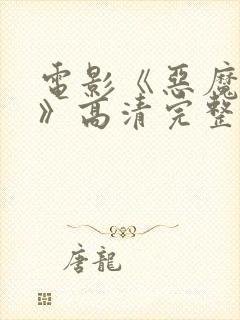 電影《惡魔
》高清完整
唐龍